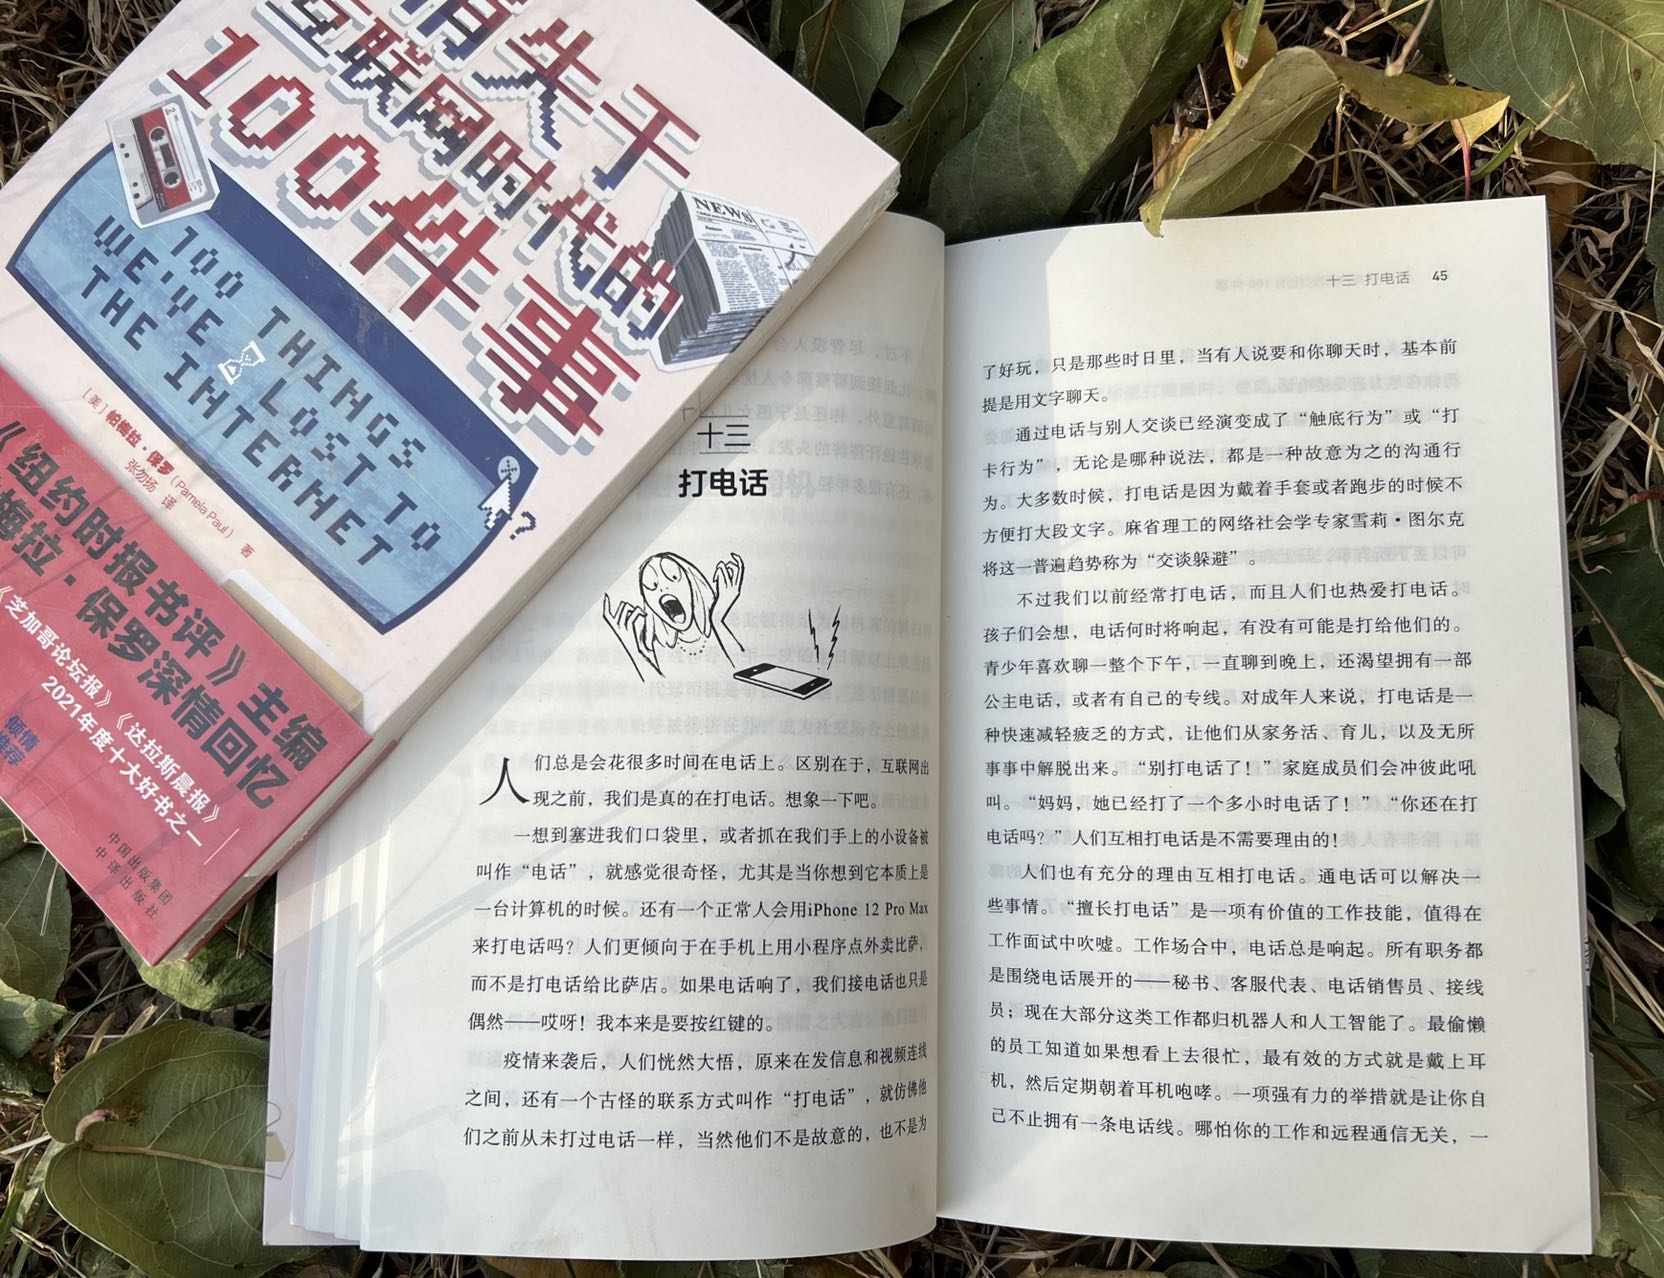 消失于
互联网时代的
100件事
NEWS
100 THINGS
WE'VE LOST TO
THE INTERNET
?
[美] 帕梅拉·保罗 (Pamela Paul) 著
张勿扬 译
《纽约时报书评》主编
梅拉·保罗深情回忆
《芝加哥论坛报》《达拉斯晨报》
2021年度十大好书之一
倾情
推荐
中国出版集团
中译出版社
十三
打电话
人们总是会花很多时间在电话上。区别在于，互联网出
现之前，我们是真的在打电话。想象一下吧。
一想到塞进我们口袋里，或者抓在我们手上的小设备被
叫作“电话”，就感觉很奇怪，尤其是当你想到它本质上是
一台计算机的时候。还有一个正常人会用iPhone 12 Pro Max
来打电话吗？人们更倾向于在手机上用小程序点外卖比萨，
而不是打电话给比萨店。如果电话响了，我们接电话也只是
偶然——哎呀！我本来是要按红键的。
疫情来袭后，人们恍然大悟，原来在发信息和视频连线
之间，还有一个古怪的联系方式叫作“打电话”，就仿佛他
们之前从未打过电话一样，当然他们不是故意的，也不是为
十三 打电话 45
了好玩，只是那些时日里，当有人说要和你聊天时，基本前
提是用文字聊天。
通过电话与别人交谈已经演变成了“触底行为”或“打
卡行为”，无论是哪种说法，都是一种故意为之的沟通行
为。大多数时候，打电话是因为戴着手套或者跑步的时候不
方便打大段文字。麻省理工的网络社会学专家雪莉·图尔克
将这一普遍趋势称为“交谈躲避”。
不过我们以前经常打电话，而且人们也热爱打电话。
孩子们会想，电话何时将响起，有没有可能是打给他们的。
青少年喜欢聊一整个下午，一直聊到晚上，还渴望拥有一部
公主电话，或者有自己的专线。对成年人来说，打电话是一
种快速减轻疲乏的方式，让他们从家务活、育儿，以及无所
事事中解脱出来。“别打电话了！”家庭成员们会冲彼此吼
叫。“妈妈，她已经打了一个多小时电话了！”“你还在打
电话吗？”人们互相打电话是不需要理由的！
人们也有充分的理由互相打电话。通电话可以解决一
些事情。“擅长打电话”是一项有价值的工作技能，值得在
工作面试中吹嘘。工作场合中，电话总是响起。所有职务都
是围绕电话展开的——秘书、客服代表、电话销售员、接线
员；现在大部分这类工作都归机器人和人工智能了。最偷懒
的员工知道如果想看上去很忙，最有效的方式就是戴上耳
机，然后定期朝着耳机咆哮。一项强有力的举措就是让你自
己不止拥有一条电话线。哪怕你的工作和远程通信无关，一